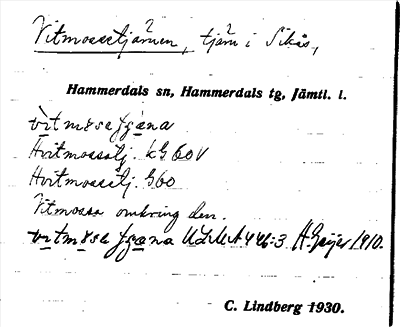 Vitmossetjärnen, tjärn i Sikås,
Hammerdals sn, Hammerdals tg, Jämtl. l.
Hvitmossetj. kG 60 V
Hvitmossetj. G60
Vitmossa omkring den.
ULMA 446:3 H. Geijer 1910.
C. Lindberg 1930.